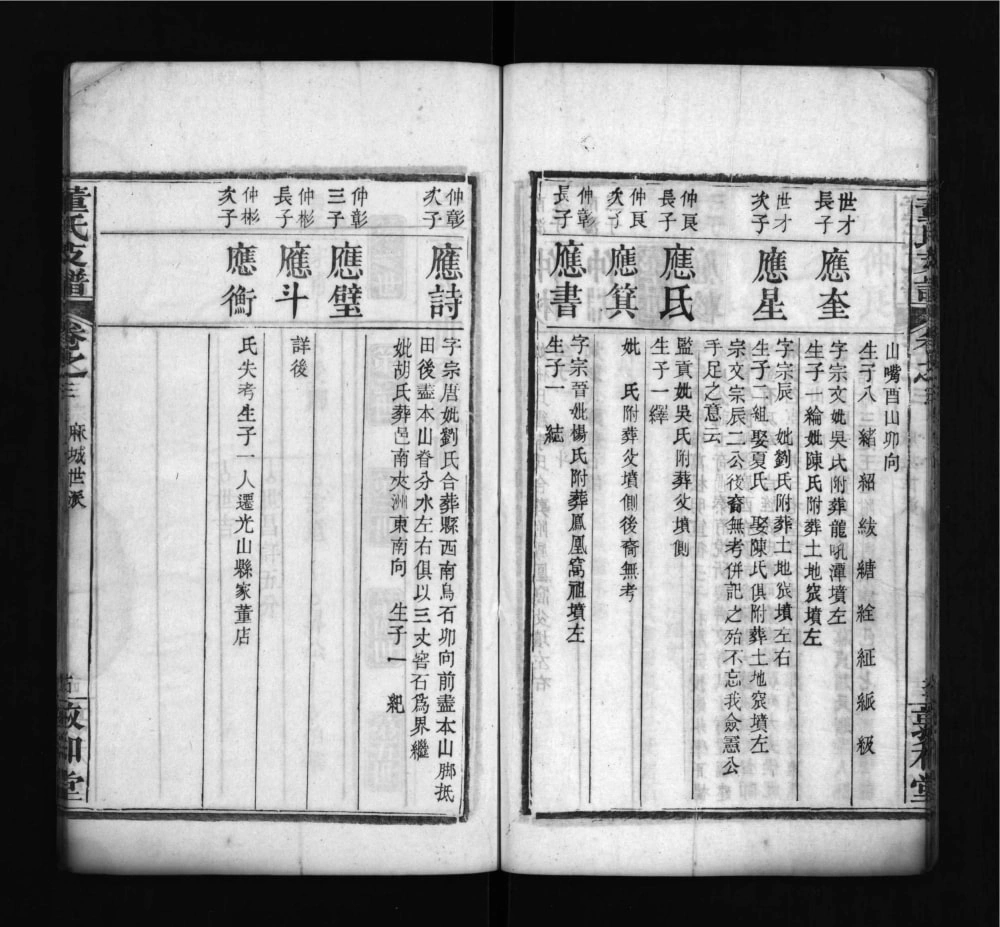 山嘴酉山卯向
生子八 緒 紹 紱 緒 絟 紝 級
世才
長子
應奎
字宗文妣吳氏附葬龍吼潭墳左
生子一綸妣陳氏附葬土地窊墳左
世才
次子
應星
字宗辰 妣劉氏附葬土地窊墳左右
生子二組娶夏氏 娶陳氏俱附葬土地窊墳左
宗文宗辰二公後裔無考併記之殆不忘我僉憲公
手足之意云
仲良
長子
應氐
監貢妣吳氏附葬父墳側
生子一繹
仲良
次子
應箕
妣 氏附葬父墳側後裔無考
仲彰
長子
應書
字宗晉妣楊氏附葬鳳凰窩祖墳左
生子一 緒
仲彰
次子
應詩
字宗唐妣劉氏合葬縣西南烏石卯向前盡本山脚抵
田後盡本山脊分水左右俱以三丈窖石爲界繼
妣胡氏葬邑南夾洲東南向 生子一 紀
仲彰
三子
應璧
仲彬
長子
應斗
詳後
仲彬
次子
應衡
氏失考生子一人遷光山縣家董店
董氏支譜
卷之三
麻城世派
敦和堂